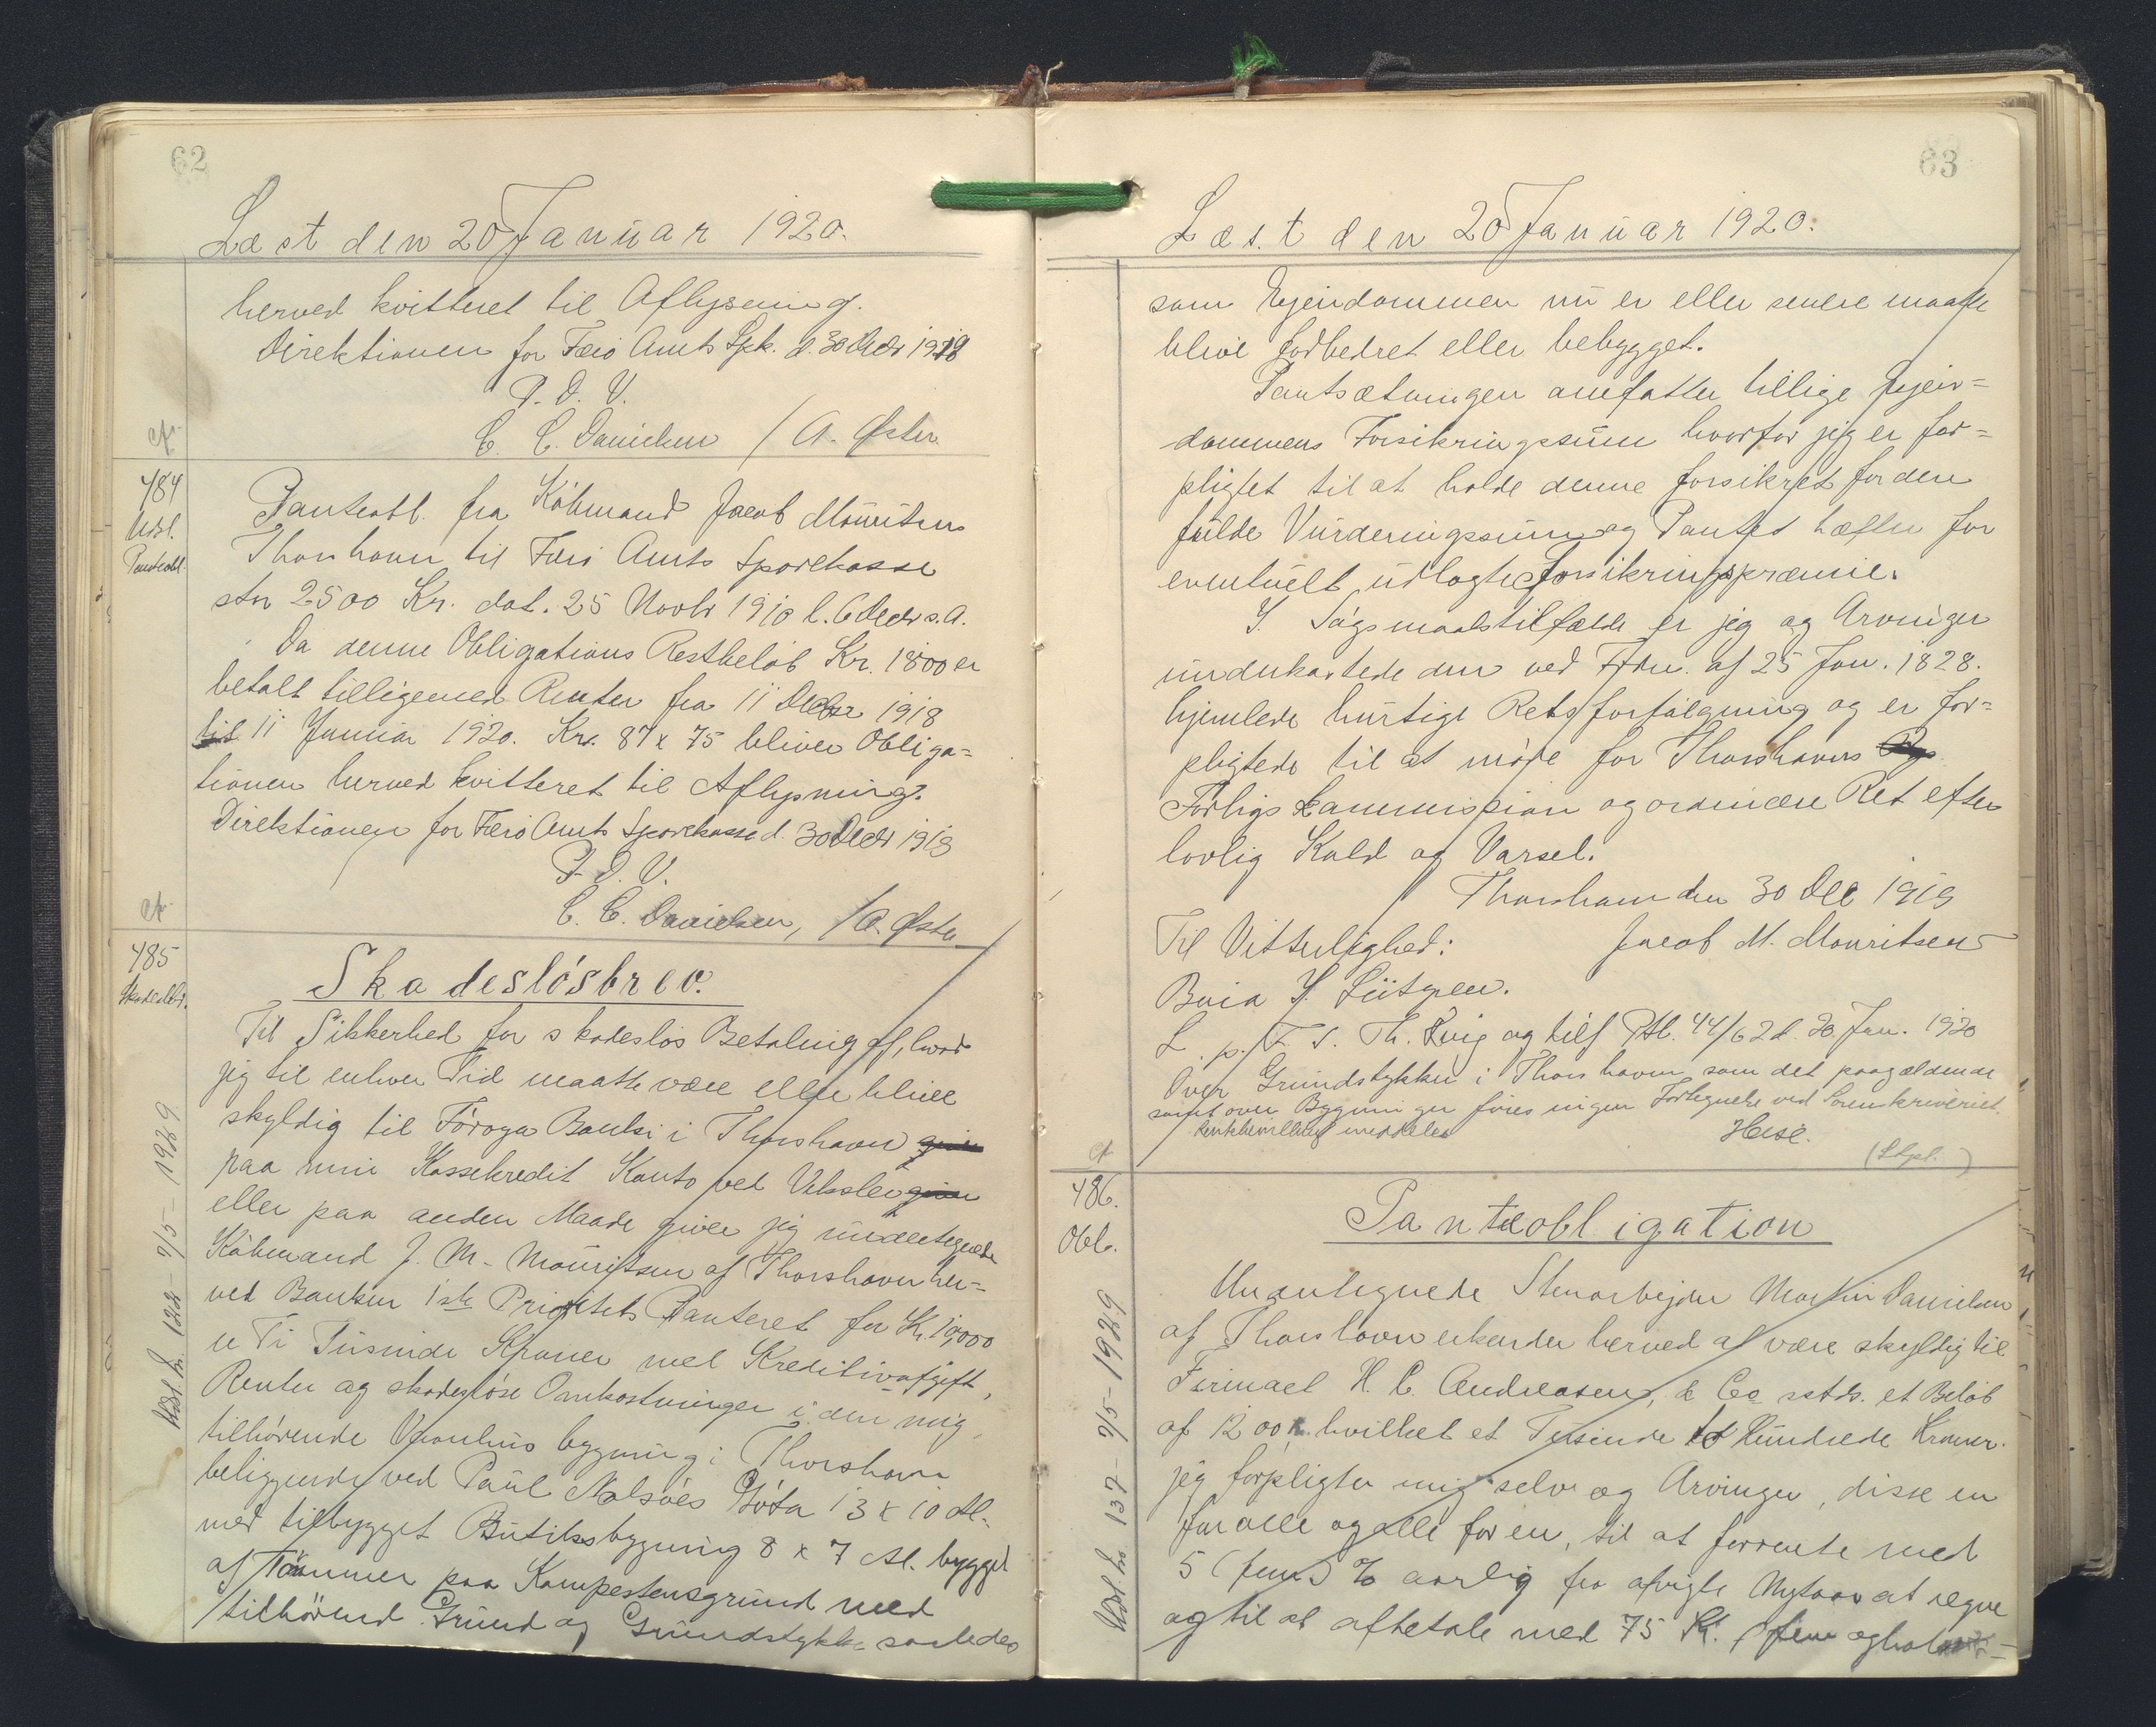 62
Læst den 20 Januar 1920.
herved kvitteret til Aflysning.
Direktionen for Færö Amts Spk. d. 30 Decbr 1919
P. D. V.
C. C. Danielsen / A. Øster
484
Udsl.
Panteobl.
Panteobl. fra Köbmand Jacob Mouritsen
Thorshavn til Færö Amts Sparekasse
stor 2500 Kr. dat. 25 Novbr 1910 l. 6 Decbr s. A.
Da denne Obligations Restbelöb Kr. 1800 er
betalt tilligemed Renter fra 11 Decbr 1918
til 11 Januar 1920. Kr. 87 x 75 bliver Obliga=
tionen herved kvitteret til Aflysning.
Direktionen for Færö Amts Sparekasse d. 30 Decbr 1919
P. D. V.
C. C. Danielsen, / A. Øster
485
Skadeslbr.
Skadeslösbrev.
Til Sikkerhed for skadeslös Betaling af, hvad
jeg til enhver Tid maatte være eller blive
skyldig til Föroya Banki i Thorshavn
paa min Kassekredit Konto ved Veksler
eller paa anden Maade giver jeg undertegnede
Köbmand J. M. Mouritsen af Thorshavn her=
ved Banken 1ste Prioritets Panteret for Kr. 10000
er Ti Tusinde Kroner med Kreditivafgift,
Renter og skadeslöse Omkostninger i den mig
tilhörende Vaanhus bygning i Thorshavn
beliggende ved Paul Nolsöes Göta 13 x 10 Al.
med tilbygget Butiksbygning 8 x 7 Al. bygget
af Tömmer paa Kampestensgrund med
tilhörend Grund og Grundstykke saaledes
Udsl. Nr. 122 - 7/5 - 1929
63
Læst den 20 Januar 1920.
som Ejendommen nu er eller senere maatte
blive forbedret eller bebygget.
Pantsætningen omfatter tillige Ejen=
dommens Forsikringssum hvorfor jeg er for=
pligtet til at holde denne forsikret for den
fulde Vurderingssum og Pantet hæfter for
eventuelt udlagte Forsikringspræmie.
I Søgsmaalstilfælde er jeg og Arvinger
underkastede den ved Frdn. af 25 Jan. 1828.
hjemlede hurtige Retsforfölgning og er for=
pligtede til at möde for Thorshavns
Forligs Kommission og ordinære Ret efter
lovlig Kald og Varsel.
Thorshavn den 30 Dec 1919
Til Vitterlighed: Jacob M. Mouritsen
Buia J. Lützen.
L. p. F. S. Th. Ting og tilf Ptl. 44/62 d. 20 Jan. 1920
Over Grundstykker i Thorshavn som det paagældende
samt over Bygninger föres ingen Fortegnelse ved Sorenskriveriet.
meddeles
Heise.
(Stpl.)
486.
Obl.
Panteobligation
Undertegnede Stenarbejder Martin Danielsen
af Thorshavn erkender herved at være skyldig til
Firmaet H. C. Andreasen & Co sstds. et Belöb
af 1200 Kr. hvilket et Tusinde to Hundrede Kroner.
jeg forpligter mig selv og Arvinger, disse en
for alle og alle for en, til at forrente med
5 (fem) % aarlig fra afvigte Nytaar at regne
og til at afbetale med 75 Kr. (fem og halv
Udsl. Nr 137 - 7/5 - 1929